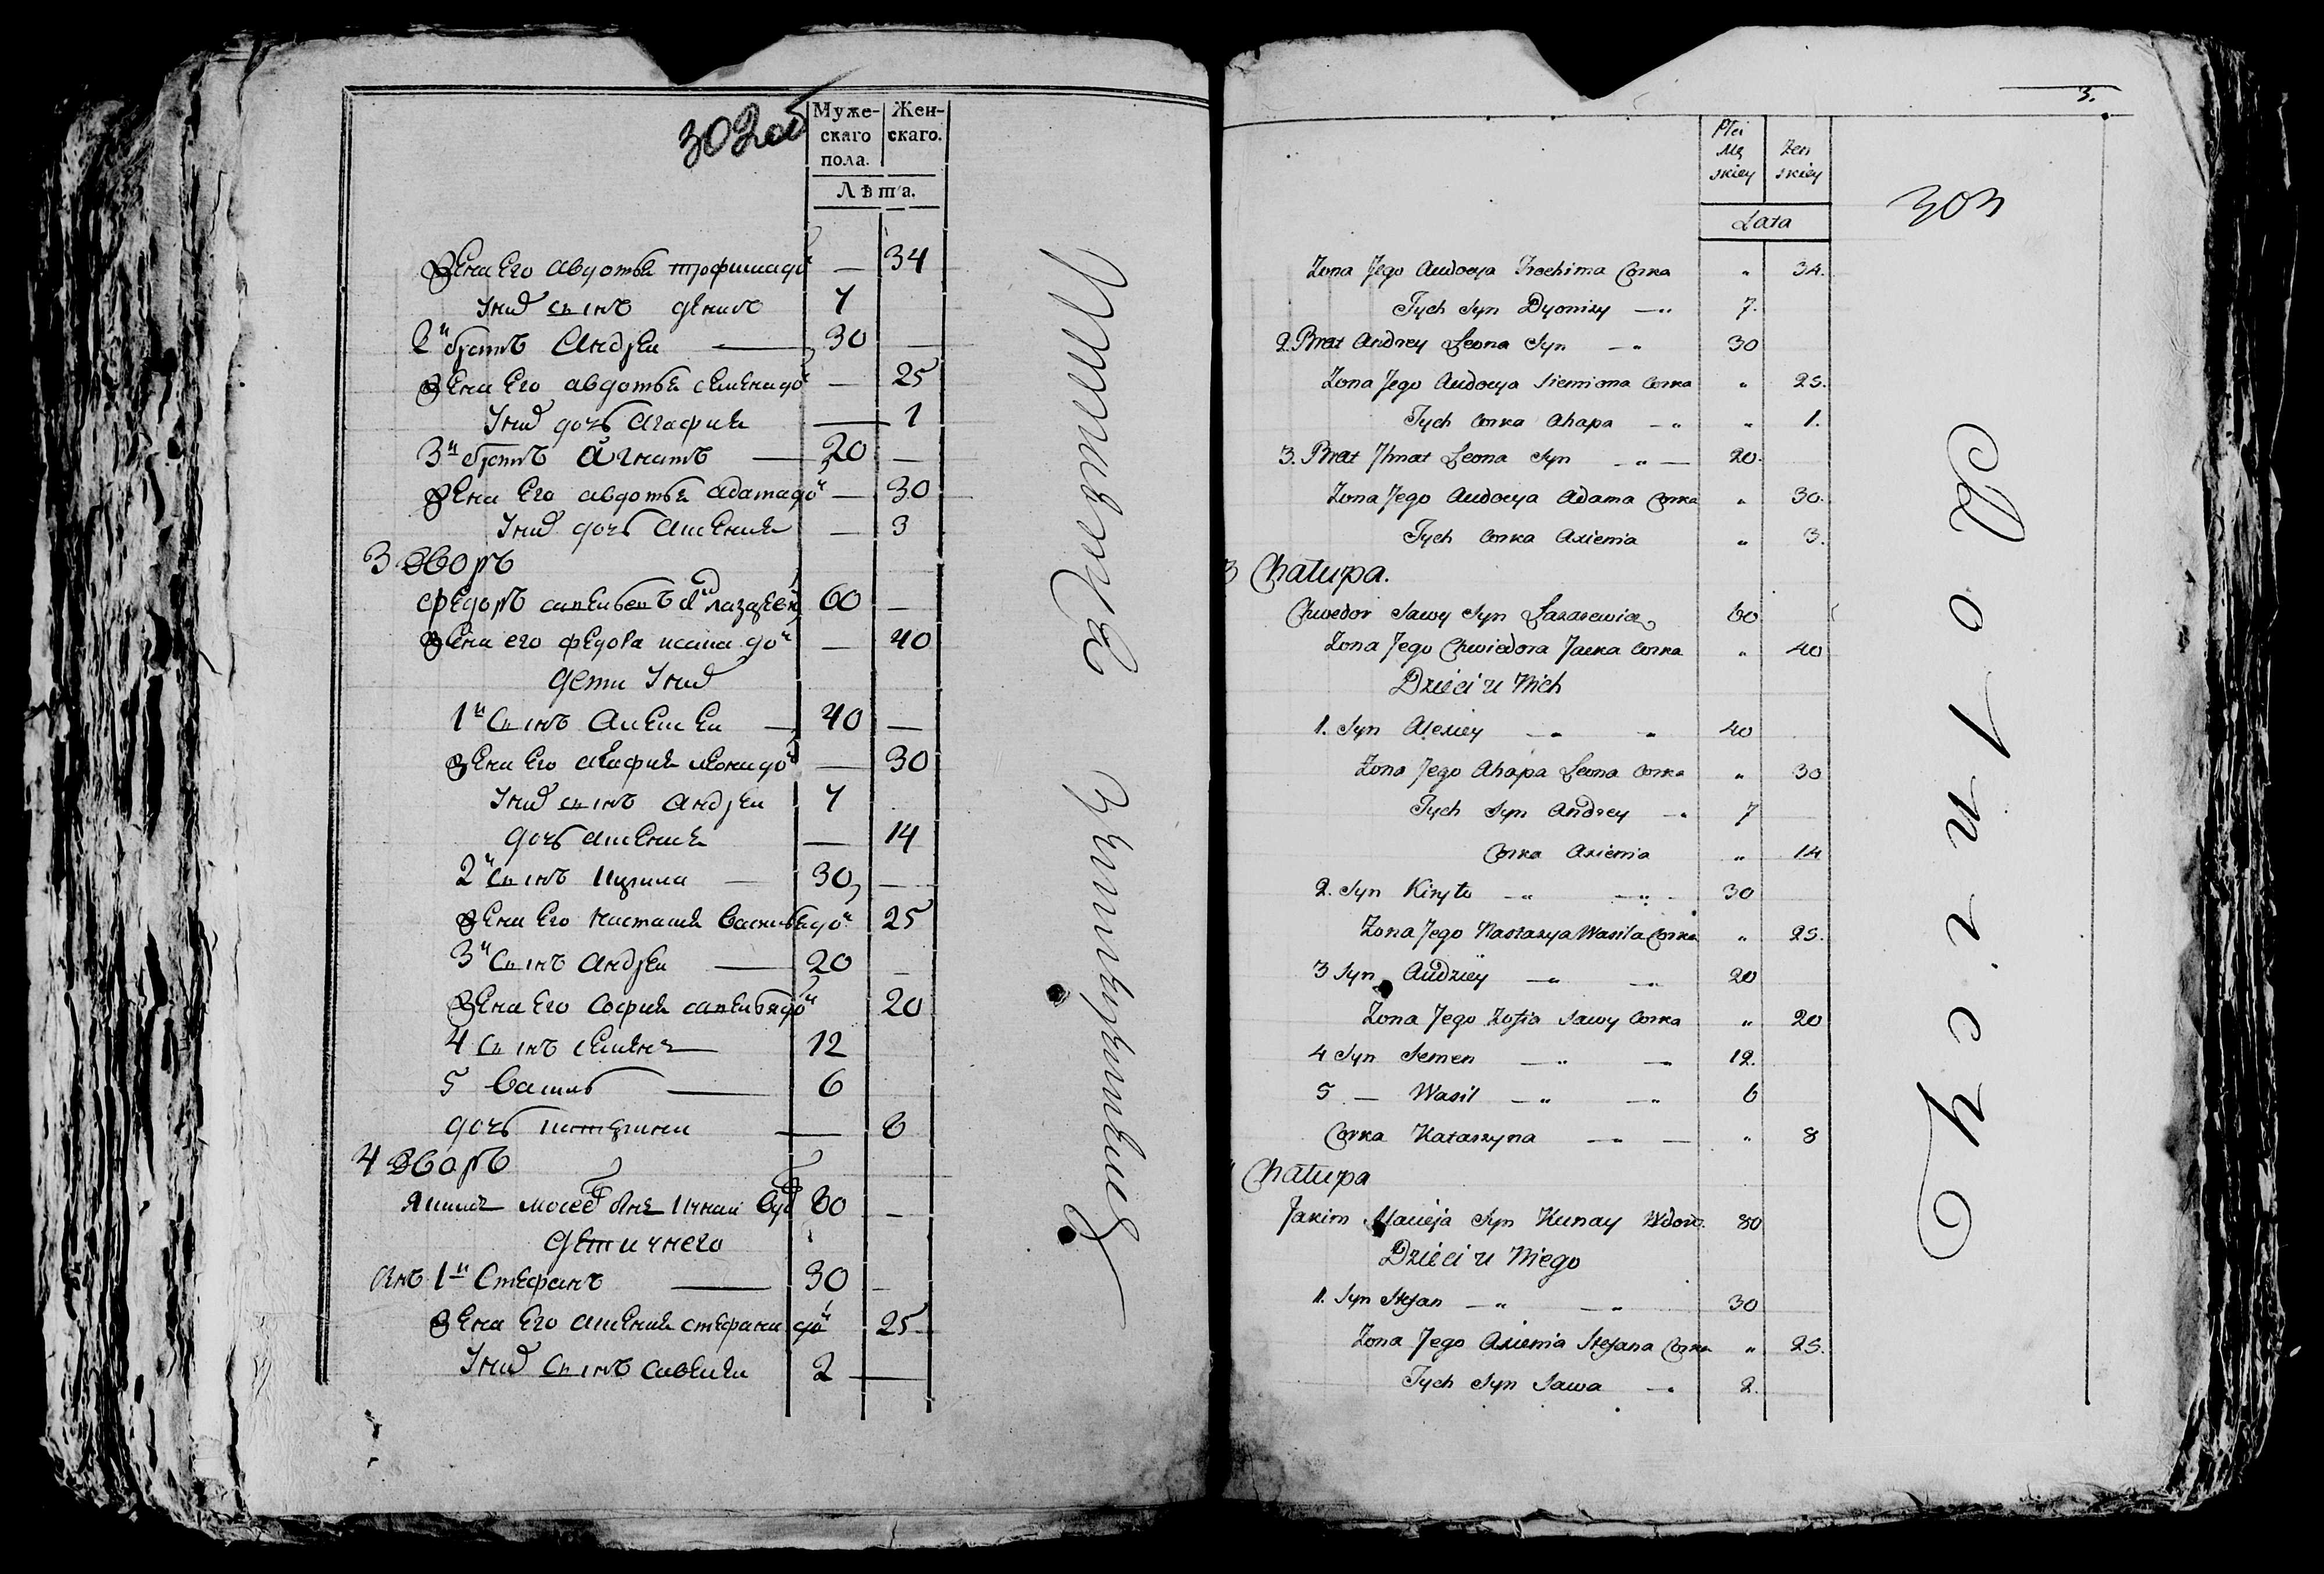 302 об
Муже-
скаго
пола.
Жен-
скаго.
Лѣта.
Жена Его авдотья трофима до: — 34
Унихъ сынъ денисъ 7
2й братъ Андрей — 30 —
Жена Его авдотья семена до: — 25
Унихъ дочь агафия — 1
3й братъ Игнатъ — 20 —
Жена Его авдотья адама до: — 30
Унихъ дочь аксения — 3
3 Дворъ
Федоръ 60 —
Жена его федора яцка до: — 40
дети Унихъ
1й Сынъ Алексей — 40 —
Жена Его агафия леона до: — 30
Унихъ сынъ андрей 7
дочь аксения — 14
2й Сынъ Кирила — 30 —
Жена Его Настасия Василья до: 25
3й Сынъ андрей — 20 —
Жена Его София савелья до: 20
4 Сынъ семенъ — 12
5 Василь — 6
дочь катерина — 8
4 Дворъ
80 —
дети у него
1й Стефанъ — 30 —
Жена Его аксения стефана до: 25
Унихъ Сынъ савелий 2 —
3.
303
Płci
Mę
skiey
Żeń
skiey
Lata
Zona Jego Audocya Trochima Corka " 34.
Tych Syn Dyonizy — " 7.
2. Brat Andrey Leona Syn — " 30
Zona Jego Audocya Siemiona Corka " 25.
Tych Corka Ahapa — " " 1.
3. Brat Jhnat Leona Syn — " — 20.
Zona Jego Audocya Adama Corka " 30.
Tych Corka Axienia " 3.
3 Chałupa.
Chwedor Sawy Syn Łazarewicz 60
Zona Jego Chwiedora Jacka Corka " 40
Dzieci u Nich
1. Syn Alexiey — " " 40
Zona Jego Ahapa Leona Corka " 30
Tych Syn Andrey — " 7
Corka Axienia " 14
2. Syn Kiryło — " — " 30
Zona Jego Nastazya Wasila Corka " 25.
3 Syn Andrziey — " — " 20
Zona Jego Zofia Sawy Corka " 20
4 Syn Semen — " — 12.
5 — Wasil — " — " 6
Corka Katarzyna — " — " 8
Chałupa
Jakim Macieja Syn Kunay Wdow. 80
Dzieci u Niego
1. Syn Stefan — " — " 30
Zona Jego Axienia Stefana Corka " 25.
Tych Syn Sawa — " 2.